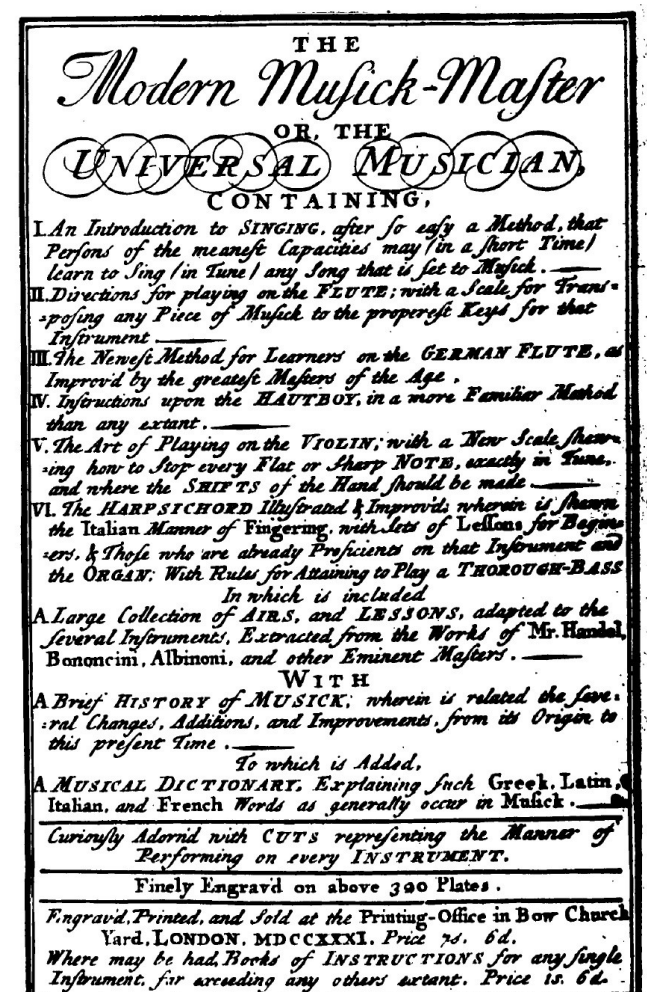 THE
Modern Muſick-Maſter
OR, THE
UNIVERSAL MUSICIAN,
CONTAINING,
I. An Introduction to SINGING, after ſo eaſy a Method, that
Perſons of the meaneſt Capacities may (in a ſhort Time)
learn to Sing (in Tune) any Song that is ſet to Muſick.
II. Directions for playing on the FLUTE; with a Scale for Trans=
=poſing any Piece of Muſick to the propereſt Keys for that
Inſtrument
III. The Neweſt Method for Learners on the GERMAN FLUTE, as
Improv'd by the greateſt Maſters of the Age.
IV. Inſtructions upon the HAUTBOY, in a more Familiar Method
than any extant.
V. The Art of Playing on the VIOLIN; with a New Scale ſhew=
=ing how to Stop every Flat or Sharp NOTE, exactly in Tune,
and where the SHIFTS of the Hand ſhould be made
VI. The HARPSICHORD Illuſtrated & Improv'd; wherein is ſhewn
the Italian Manner of Fingering, with Sets of Leſſons for Begin=
=ers, & Thoſe who are already Proficients on that Inſtrument and
the ORGAN; With Rules for Attaining to Play a THOROUGH-BASS
In which is included
A Large Collection of AIRS, and LESSONS, adapted to the
ſeveral Inſtruments, Extracted from the Works of Mr. Handel,
Bononcini, Albinoni, and other Eminent Maſters.
WITH
A Brief HISTORY of MUSICK; wherein is related the ſeve=
=ral Changes, Additions, and Improvements, from its Origin to
this preſent Time.
To which is Added,
A MUSICAL DICTIONARY, Explaining ſuch Greek, Latin,
Italian, and French Words as generally occur in Muſick.
Curiouſly Adorn'd with CUTS repreſenting the Manner of
Performing on every INSTRUMENT.
Finely Engrav'd on above 320 Plates.
Engrav'd, Printed, and Sold at the Printing-Office in Bow Church
Yard, LONDON. MDCCXXXI. Price 7s. 6d.
Where may be had, Books of INSTRUCTIONS for any ſingle
Inſtrument, far exceeding any others extant. Price 1s. 6d.